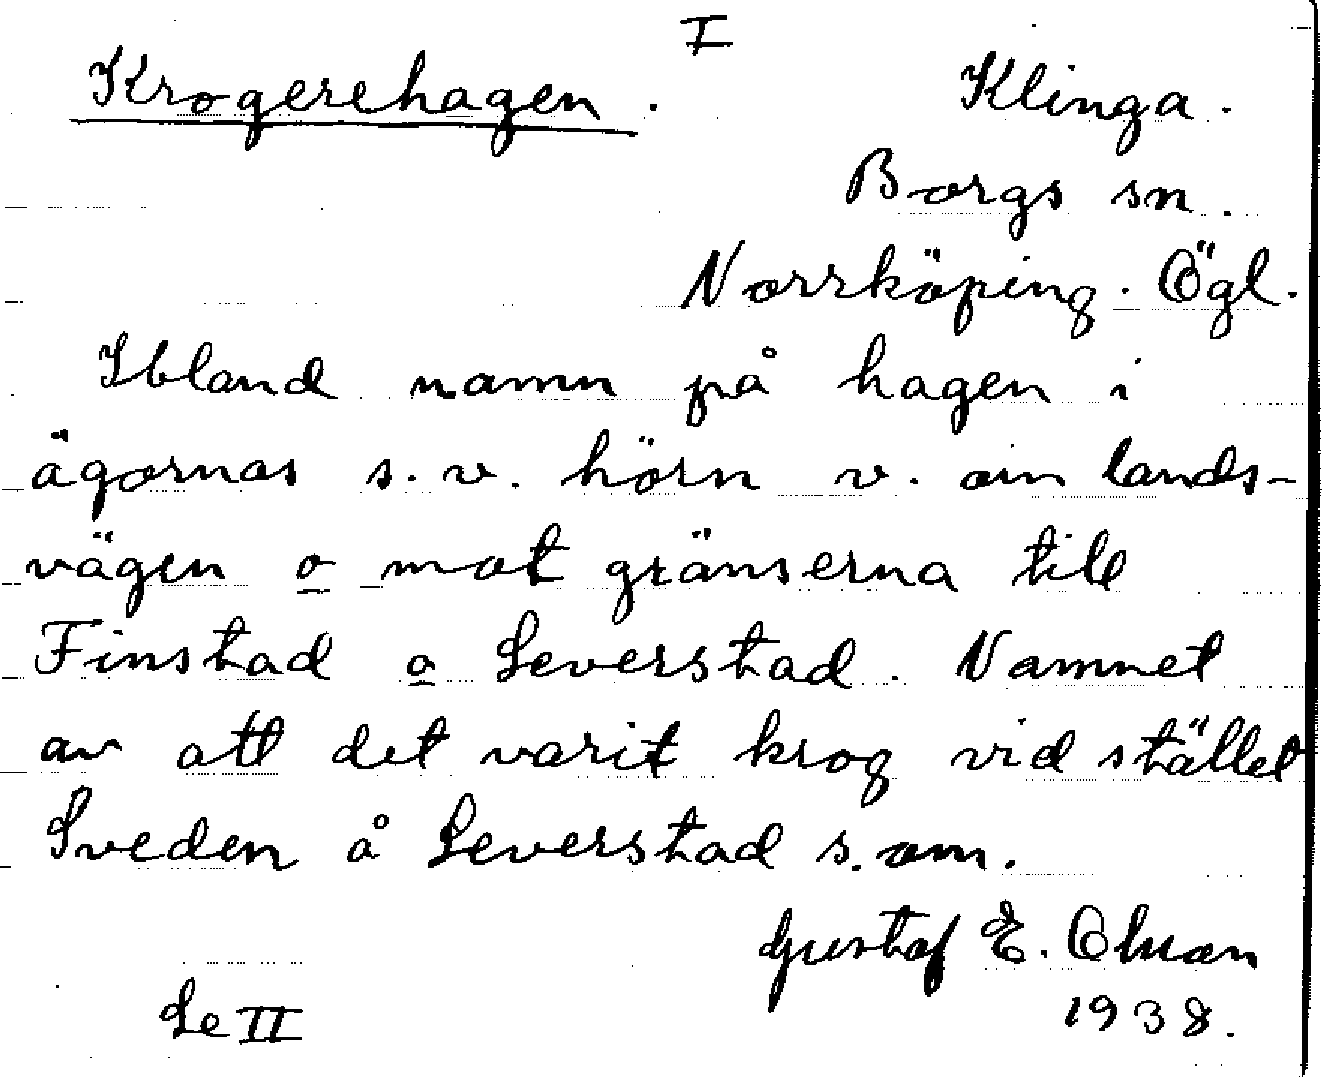 I
Krogerehagen. Klinga.
Borgs sn.
Norrköping. Ögl.
Ibland namn på hagen i
ägornas s.v. hörn v. om lands-
vägen o mot gränserna till
Finstad o Leverstad. Namnet
av att det varit krog vid stället
Sveden å Leverstad s. om.
Gustaf E. Olson
Se II 1938.